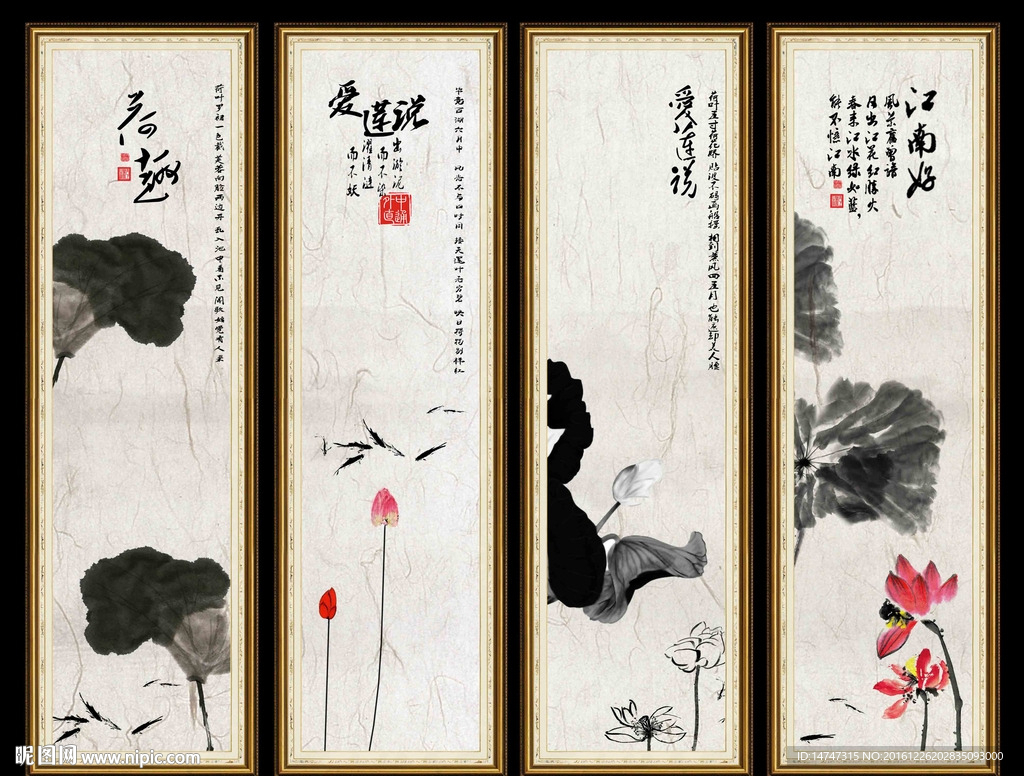 荷趣
荷叶罗裙一色裁 芙蓉向脸两边开 乱入池中看不见 闻歌始觉有人来
爱莲说
出淤泥
而不染
濯清涟
而不妖
中通外直
毕竟西湖六月中 风光不与四时同 接天莲叶无穷碧 映日荷花别样红
愛莲说
荷叶五寸荷花娇 贴波不碍画船摇 相到薰风四五月 也能遮却美人腰
江南好
風景舊曾諳
日出江花红勝火
春来江水绿如蓝，
能不憶江南
昵图网 www.nipic.com
ID:14747315 NO:20161226202835093000